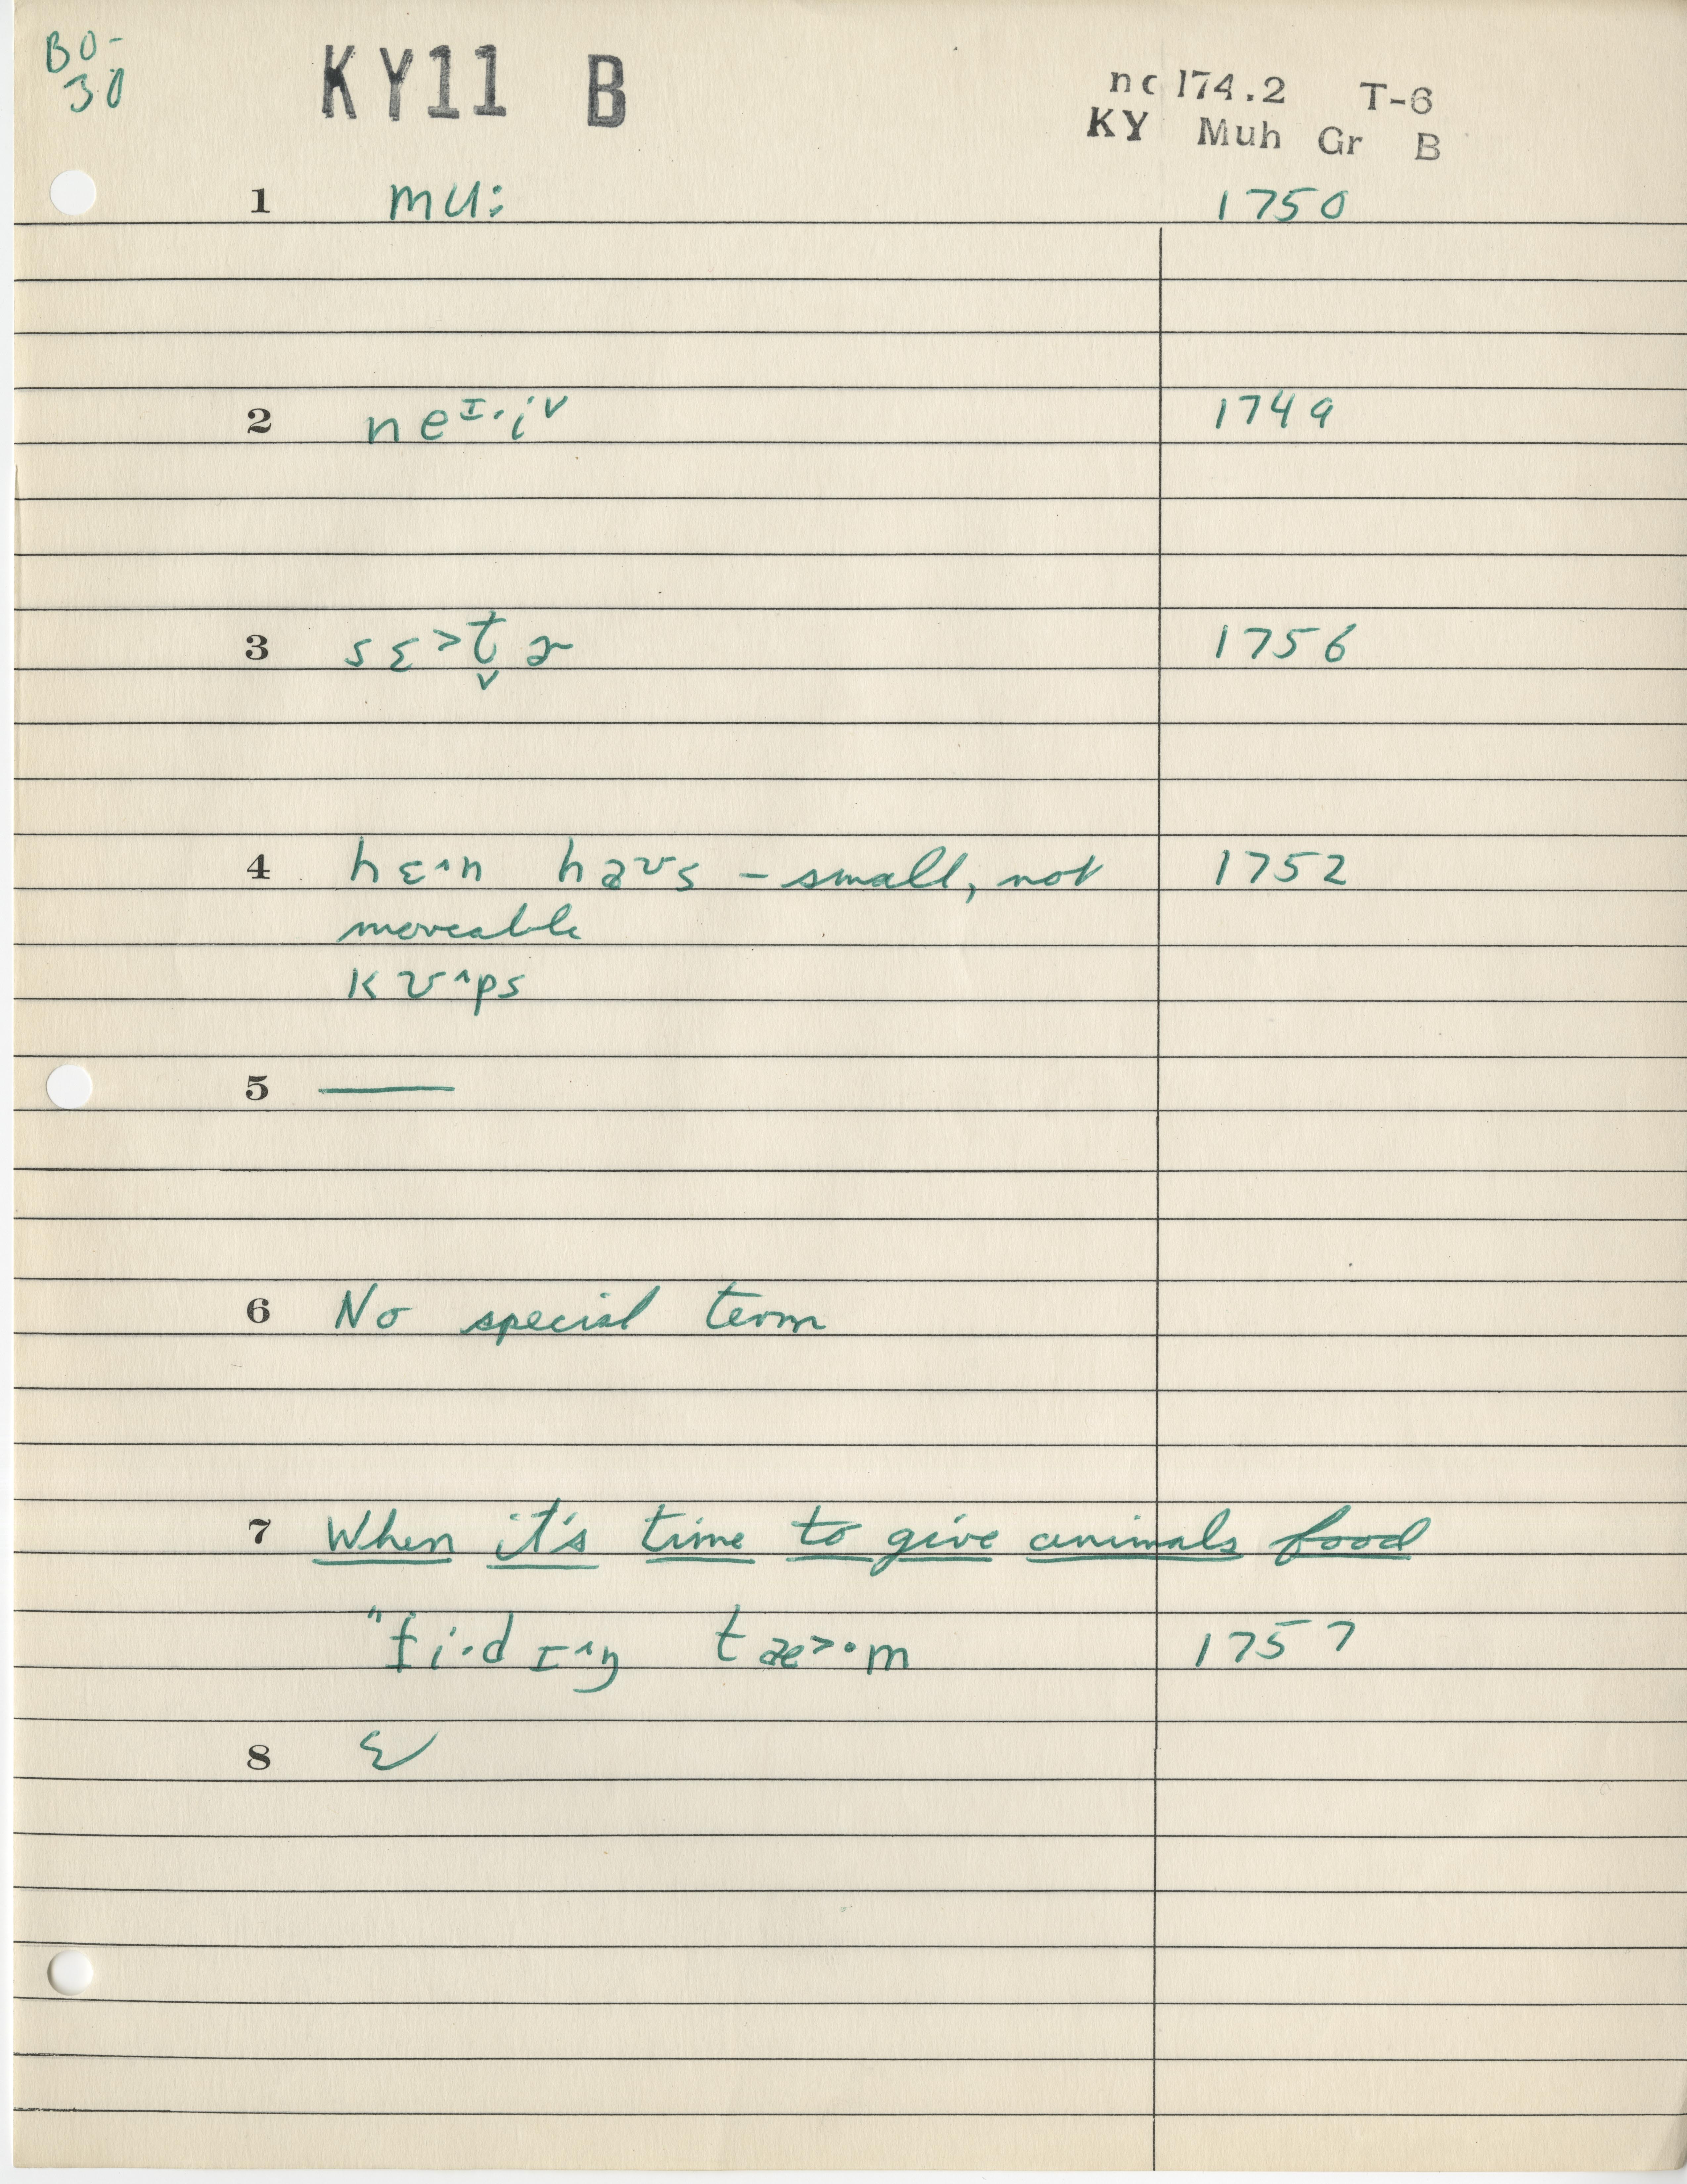 BO-
30
KY11 B
nc 174.2 T-6
KY Muh Gr B
1 mu: 1750
2 neɪ·iv 1749
3 sɛ>t̬ɚ 1756
4 hɛ^n haʊs – small, not 1752
moveable
kʊ^ps
5 ——
6 No special term
7 When it's time to give animals food
"fi·dɪ^ŋ tæ>·m 1757
8